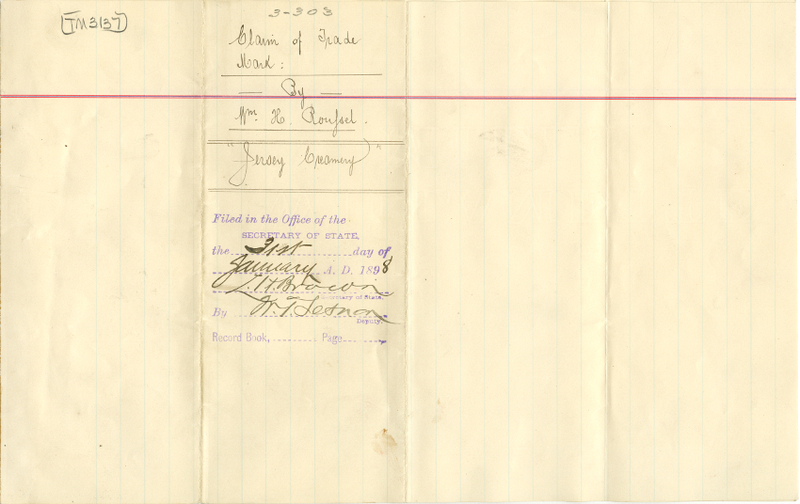 TM3137
3-303
Claim of Trade
Mark:
— By —
Wm. H. Roussel.
"Jersey Creamery"
Filed in the Office of the
SECRETARY OF STATE,
the 31st day of
January A. D. 1898
L. H. Brown
Secretary of State.
By W. T.
Deputy.
Record Book, Page